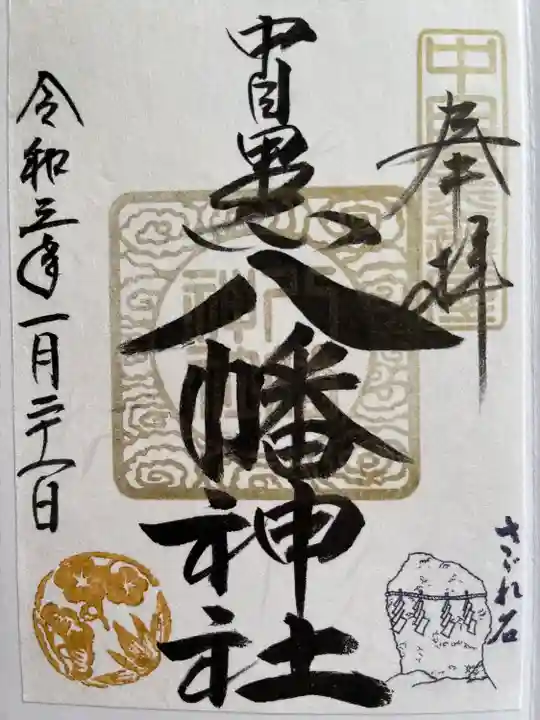 奉拝
中目黒
八幡神社
令和三年一月二十八日
さざれ石